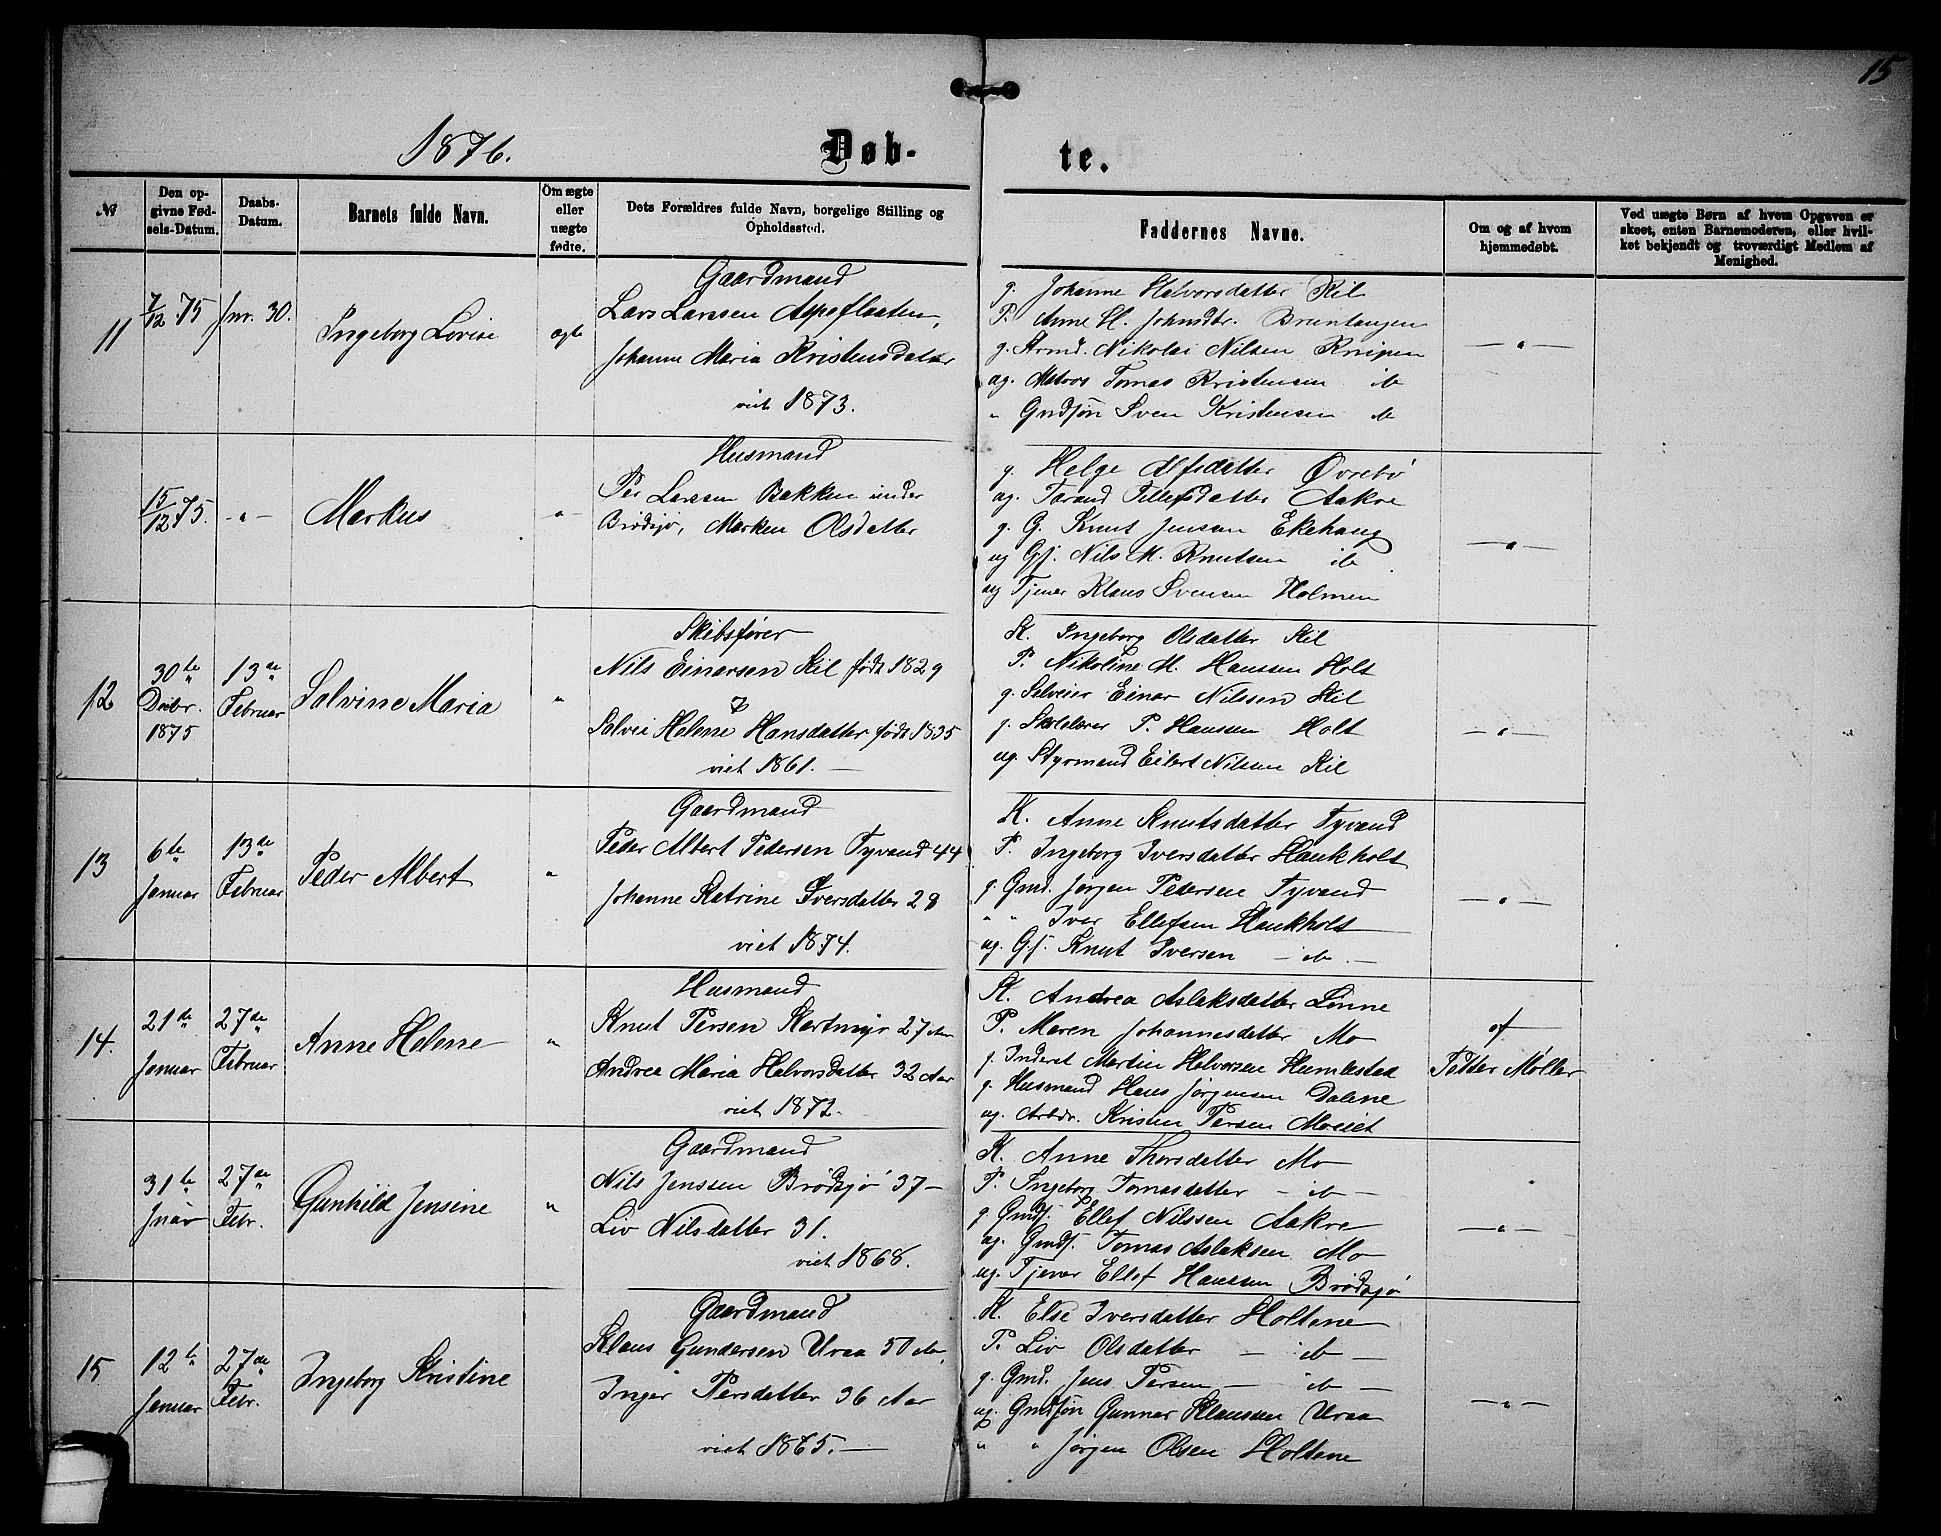 15
1876.
Døb- te.
№
Den opgivne Fødsels-Datum.
Daabs-Datum.
Barnets fulde Navn.
Om ægte eller uægte fødte.
Dets Forældres fulde Navn, borgelige Stilling og Opholdssted.
Faddernes Navne.
Om og af hvem hjemmedøbt.
Ved uægte Børn af hvem Opgaven er skeet, enten Barnemoderen, eller hvilket bekjendt og troværdigt Medlem af Menighed.
11
7/12 75
Jnr. 30.
Ingeborg Lovise
ægte
Gaardmand
Lars Larssen Aspeflaaten,
Johanne Maria Kristensdatter
viet 1873.
g. Johanne Halvorsdatter Kil
P. Anne H. Johnsdtr. Bruntangen
g. Strmd. Nikolai Nilsen Knipen
ug. Matros Tomas Kristensen ib
" Gmdsøn Sven Kristensen ib
— " —
15/12 75.
- " -
Markus
"
Husmand
Per Larssen Bakken under
Brødsjø, Marken Olsdatter
g. Helge Alfsdatter Øvrebø
ug. Tarand Tellefsdatter Aakre
g. G. Knut Jensen Ekehaug
ug Gf. Nils M. Knutsen ib
ug Tjener Klaus Svensen Holmen
— " —
12
30te Dcbr. 1875
13de Februar
Solvine Maria
"
Skibsfører
Nils Einarsen Kil født 1829
&
Solvei Helene Hansdatter født 1835
viet 1861. —
K. Ingeborg Olsdatter Kil
P. Nikoline M. Hanssen Holt
g. Selveier Einar Nilssen Kil
g. Skolelærer P. Hanssen Holt
ug. Styrmand Eilert Nilsen Kil
— " —
13
6te Januar
13de Februar
Peder Albert
"
Gaardmand
Peder Albert Pedersen Tyvand 44
Johanne Katrine Iversdatter 28
viet 1874.
K. Anne Knutsdatter Tyvand
P. Ingeborg Iversdatter Haukholt
g. Gmd. Jørgen Petersen Tyvand
" " Iver Ellefsen Haukholt
ug. Gf. Knut Iversen — ib. —
— " —
14.
21de Januar
27de Februar
Anne Helene
"
Husmand
Knut Persen Kortmyr 27 Aar
Andrea Maria Halvorsdatter 32 Aar
viet 1872.
K. Andrea Aslaksdatter Linne
P. Maren Johannesdatter Mo
g. Inderst Martin Halvorsen Humlestad
g. Husmand Hans Jørgensen Dalene
ug. Arbdr. Kristen Persen Moeiet
af
Petter Møller
31te Jnar
27de Febr.
Gunhild Jensine
"
Gaardmand
Nils Jenssen Brødsjø 37 —
Liv Nilsdatter 31.
viet 1868.
K. Anne Thorsdatter Mo
P. Ingeborg Tomasdatter — ib —
g. Gmdf. Ellef Nilssen Aakre
ug. Gmdf. Tomas Aslaksen Mo
ug. Tjener Ellef Hanssen Brødsjø
— " —
15
12te Januar
27de Febr.
Ingeborg Kristine
Gaardmand
Klaus Gundersen Uraa 50 Aar,
Inger Persdatter 36 Aar
viet 1865. —
K. Else Iversdatter Holtene
P. Liv Olsdatter — ib —
g. Gmd. Jens Persen — ib —
ug. Gmdsøn Gunnar Klaussen Uraa
" " Jørgen Olsen Holtene
— " —